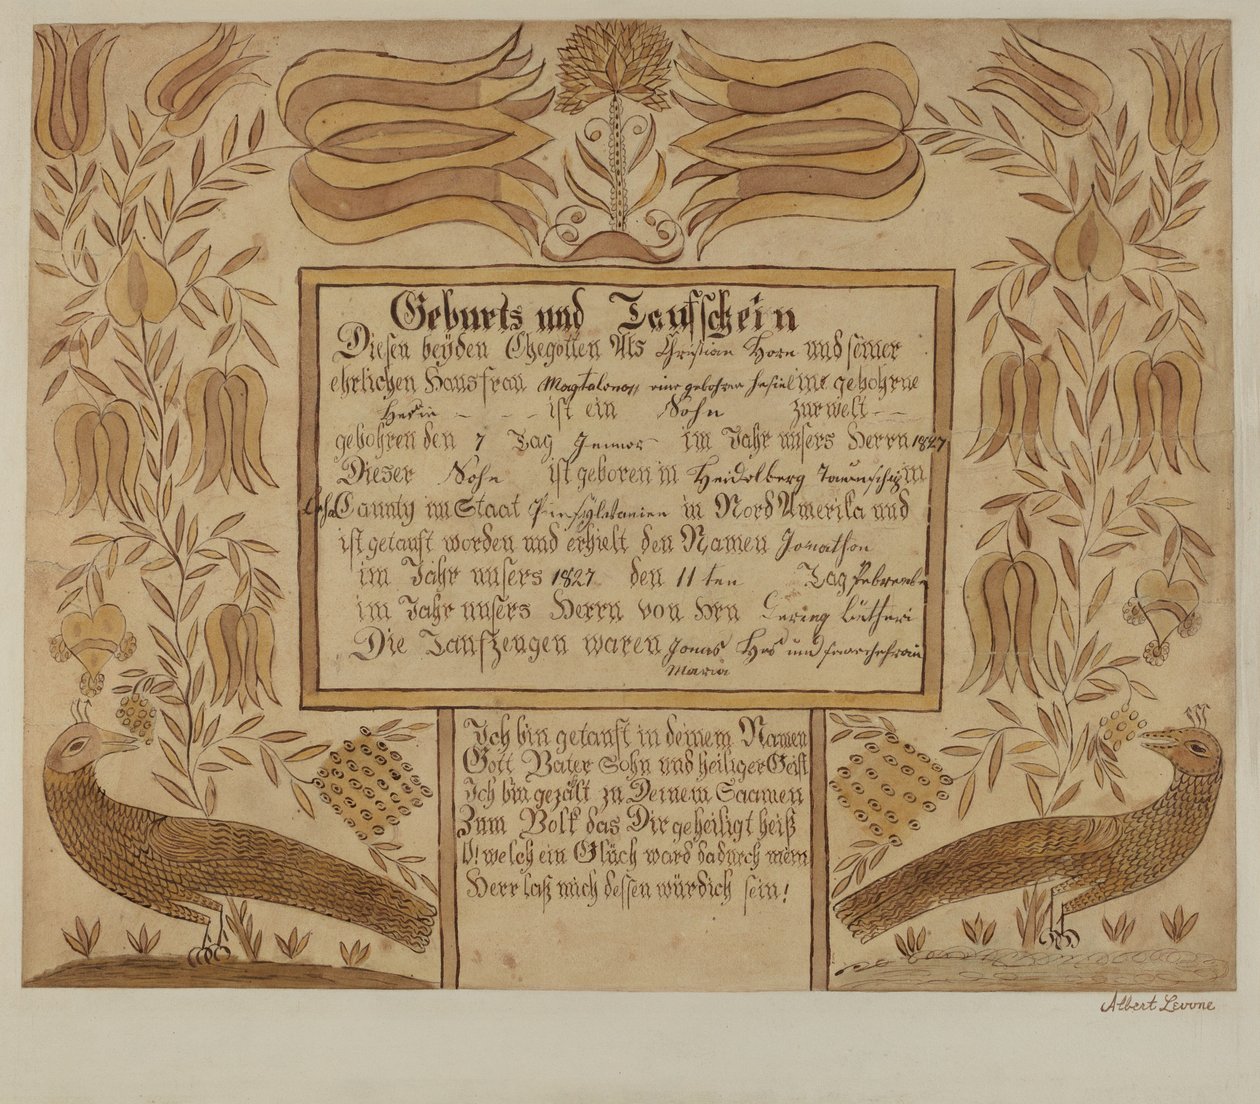 Geburts und Taufschein
Diesen beÿden Ehegatten Als Christian Horn und seiner
ehrlichen Hausfrau Magtalena eine gebohrne
ist ein Sohn zur welt
gebohren den 7 Tag Jenner im Jahr unsers Herrn 1827
Dieser Sohn ist geboren in Heidelberg Taunschip in
County im Staat Pensylvanien in Nord Amerika und
ist getauft worden und erhielt den Namen Jonathan
im Jahr unsers 1827 den 11 ten Tag Februar
im Jahr unsers Herrn von Hrn
Die Taufzeugen waren Jonas Has und
Maria
Ich bin getauft in deinem Namen
Gott Vater Sohn und heiliger Geist
Ich bin gezält zu Deinem Saamen
Zum Volk das Dir geheiligt heiß
O! welch ein Glück ward dadurch mein
Herr laß mich dessen würdich sein!
Albert Levone